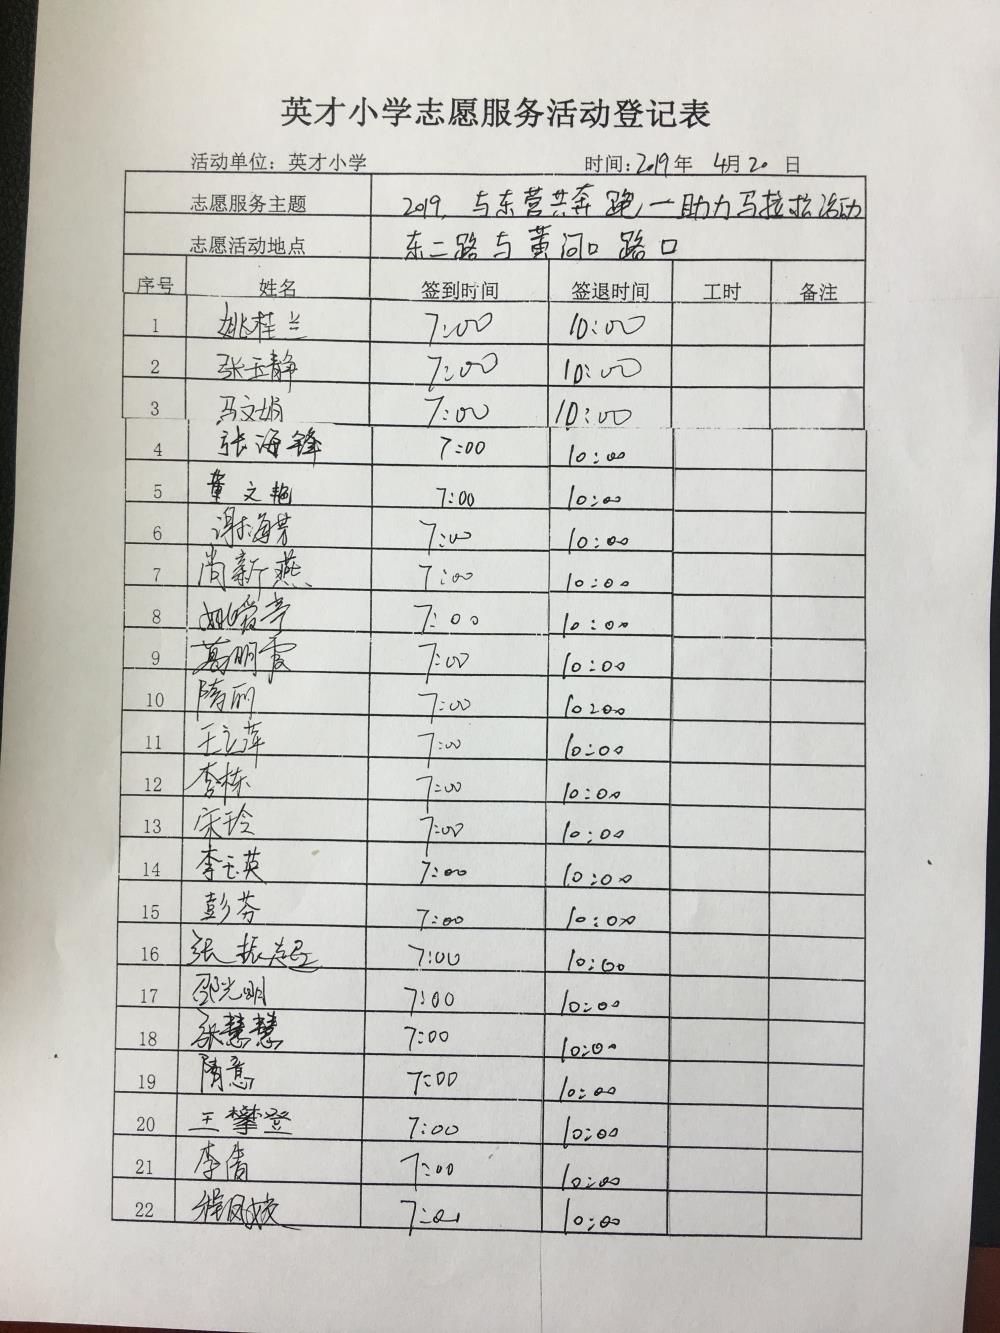 英才小学志愿服务活动登记表
活动单位：英才小学 时间：2019年 4月20日
志愿服务主题 2019，与东营共奔跑—助力马拉松活动
志愿活动地点 东二路与黄河口路口
序号 姓名 签到时间 签退时间 工时 备注
1 姚桂兰 7:00 10:00
2 张玉静 7:00 10:00
3 马文娟 7:00 10:00
4 张海锋 7:00 10:00
5 董文艳 7:00 10:00
6 谢海芳 7:00 10:00
7 尚新燕 7:00 10:00
8 姚爱亭 7:00 10:00
9 葛明霞 7:00 10:00
10 隋丽 7:00 10:00
11 王立萍 7:00 10:00
12 李栋 7:00 10:00
13 宋玲 7:00 10:00
14 李玉英 7:00 10:00
15 彭芬 7:00 10:00
16 张振超 7:00 10:00
17 邵光明 7:00 10:00
18 张慧慧 7:00 10:00
19 隋意 7:00 10:00
20 王攀登 7:00 10:00
21 李倩 7:00 10:00
22 程凤 7:00 10:00